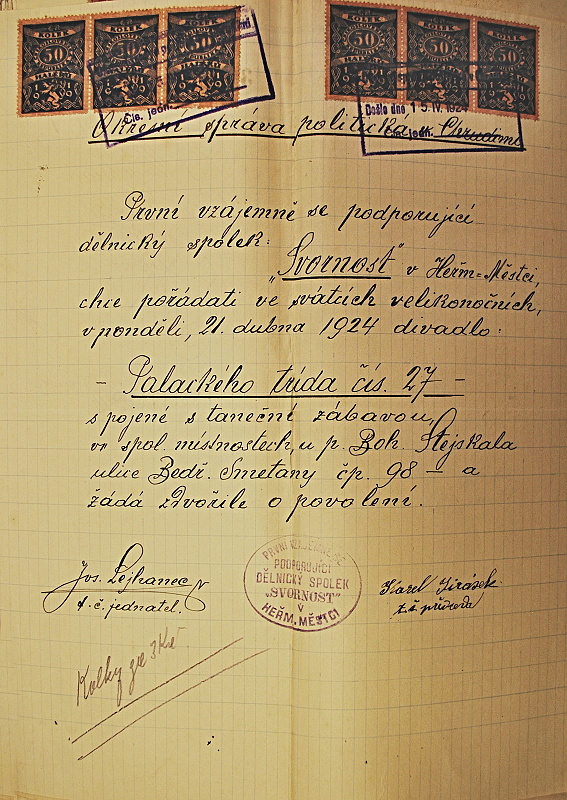 KOLEK KOLEK KOLEK KOLEK KOLEK KOLEK
50 50 50 50 50 50
HALÉŘŮ HALÉŘŮ
Čís. jedn.
Došlo dne 15. IV. 1924
Čís. jedn.
Okresní správa politická v Chrudimi
První vzájemně se podporující
dělnický spolek:
„Svornost" v Heřm=Městci,
chce pořádati ve svátcích velikonočních,
v pondělí, 21. dubna 1924 divadlo:
- Palackého třída čís. 27 -
spojené s taneční zábavou,
ve spol. místnostech, u p. Boh. Stejskala
ulice Bedř. Smetany čp. 98 - a
žádá zdvořile o povolení.
Jos. Lejhanec
t. č. jednatel.
PRVNÍ VZÁJEMNĚ SE
PODPORUJÍCÍ
DĚLNICKÝ SPOLEK
„SVORNOST"
V
HEŘM. MĚSTCI
Karel Jirásek
t. č. předseda
Kolky za 3 Kč